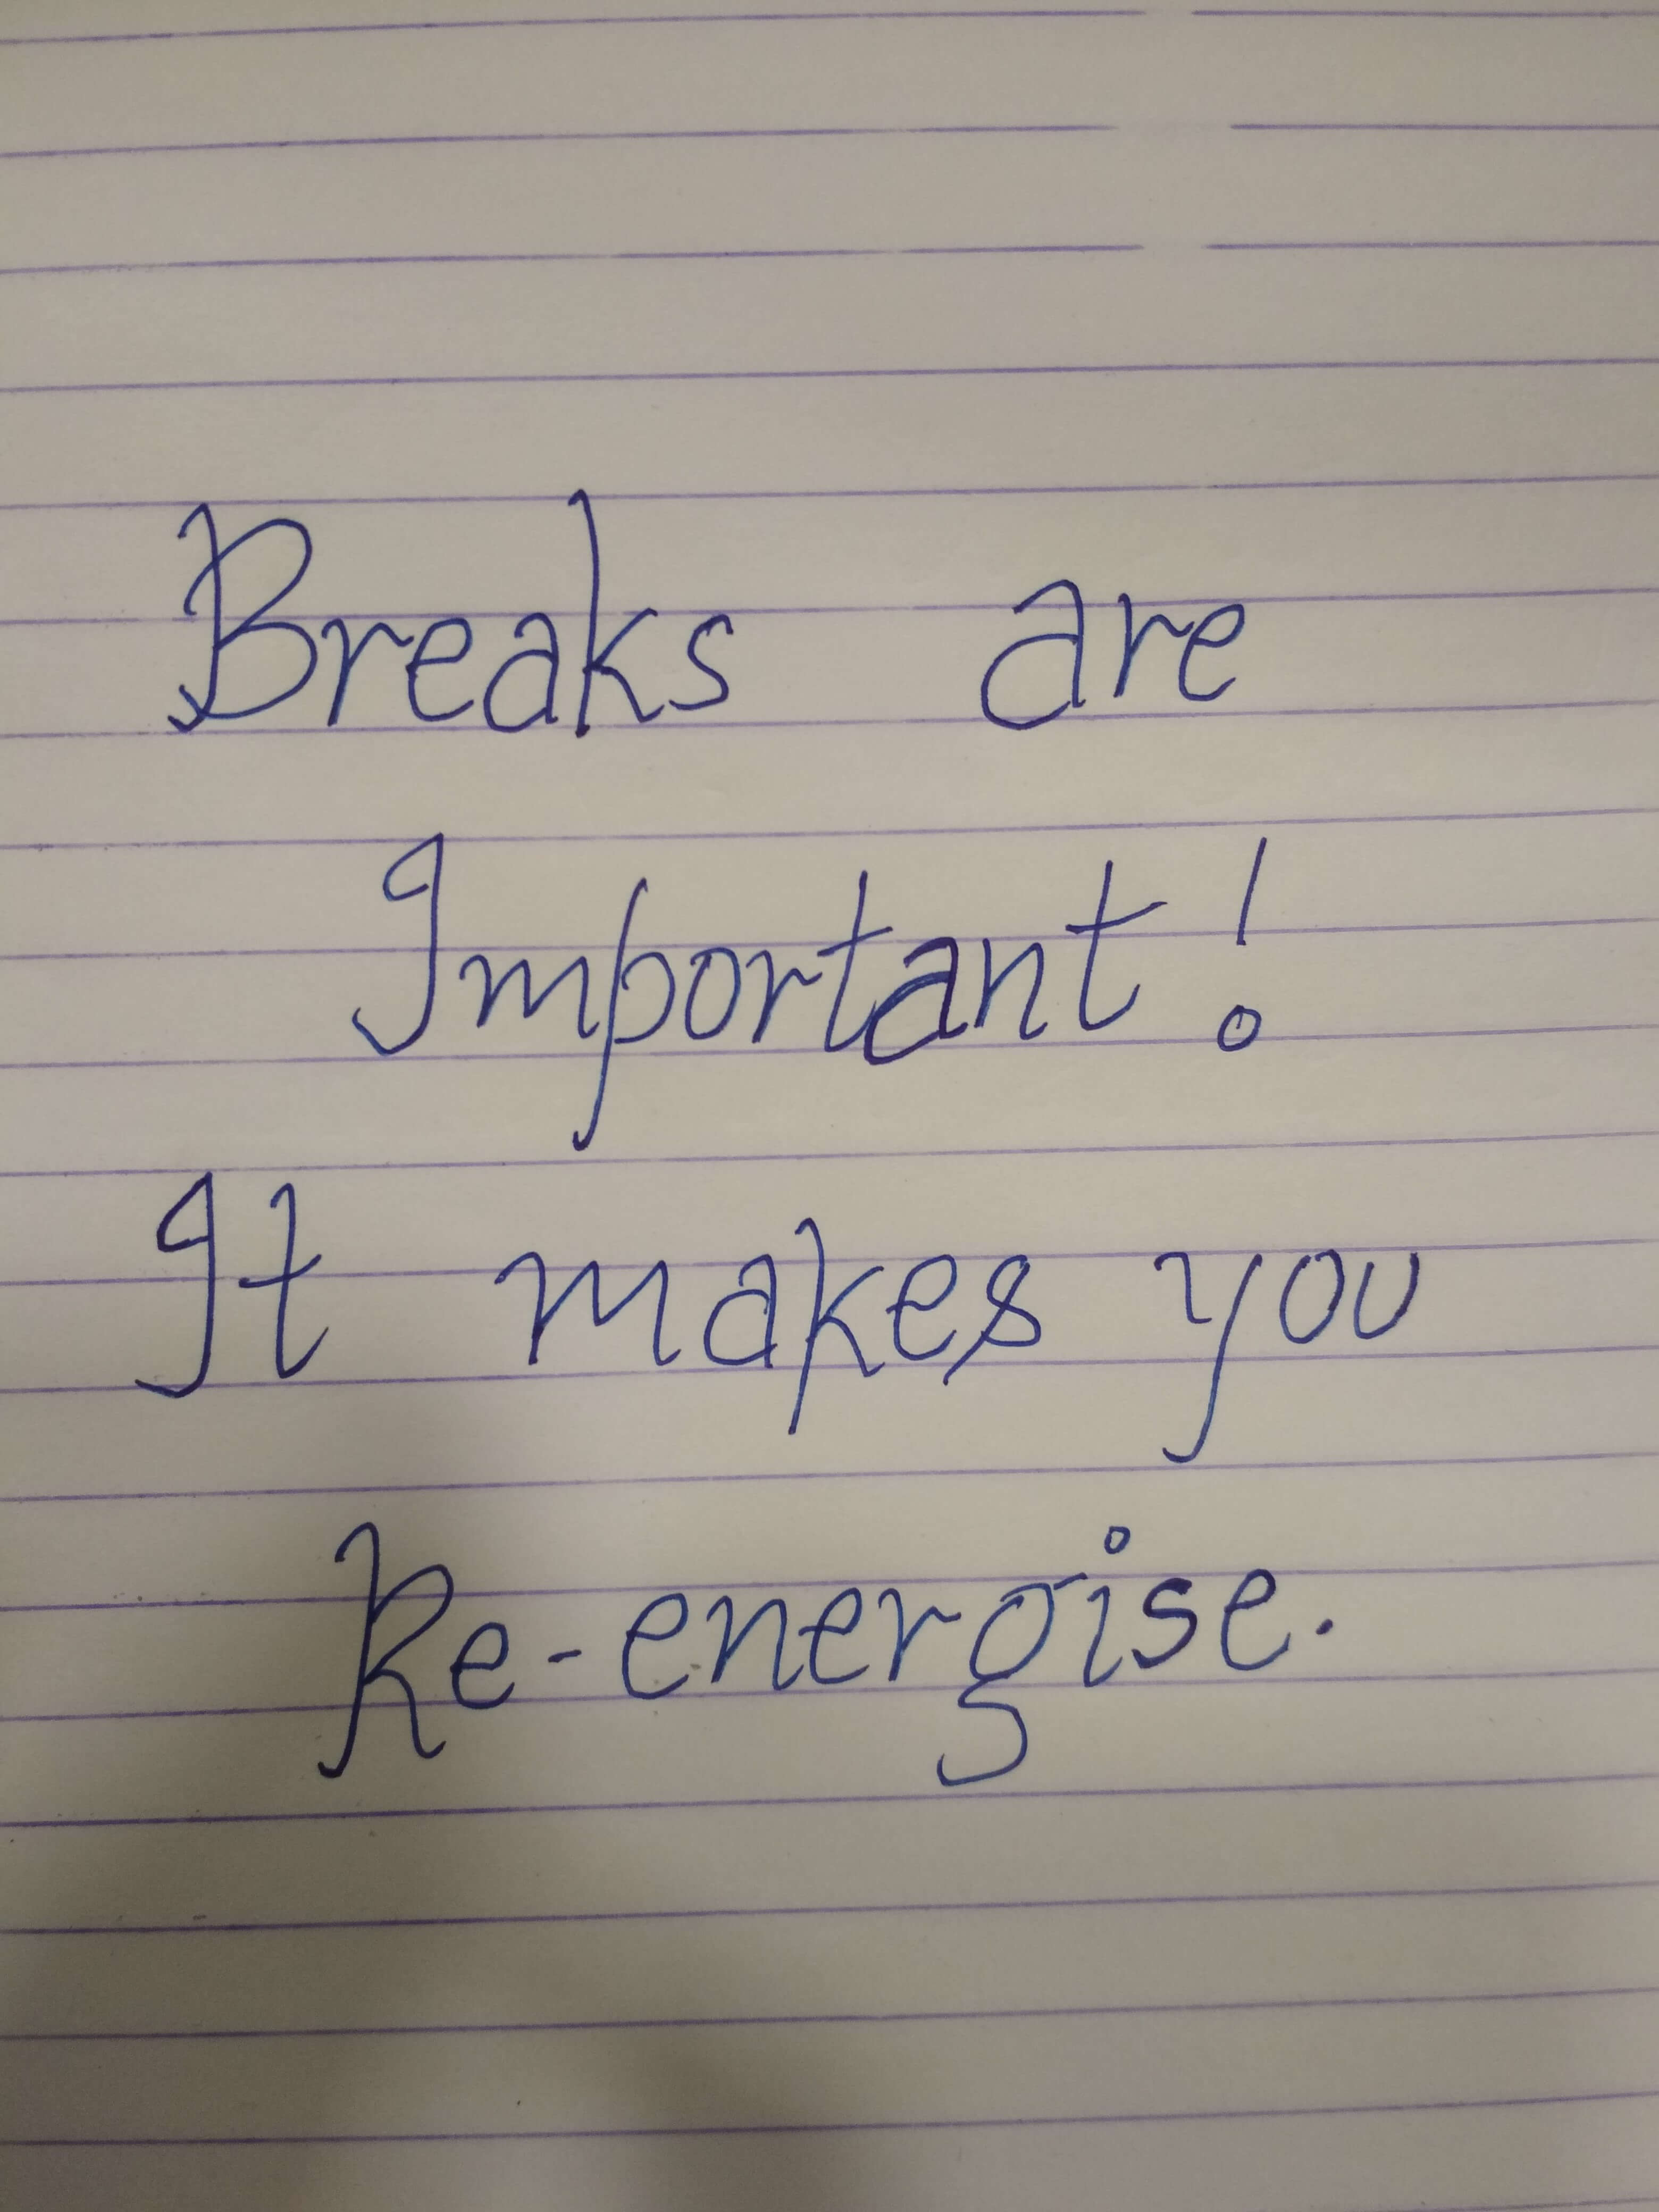 Breaks are
Important!
It makes you
Re-energise.